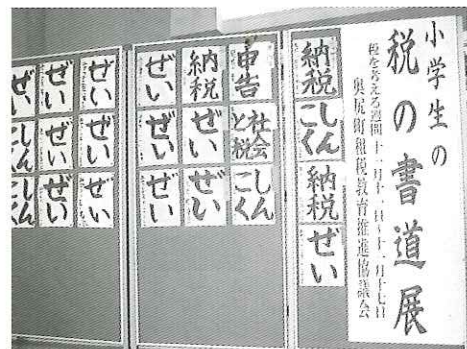 小学生の
税の書道展
税を考える週間 十一月十一日〜十一月十七日
奥尻町租税教育推進協議会
納税
しん
こく
納税
ぜい
申告
社会
と税
しん
こく
納税
ぜい
ぜい
ぜい
ぜい
ぜい
ぜい
ぜい
ぜい
ぜい
ぜい
ぜい
ぜい
しん
こく
しん
こく